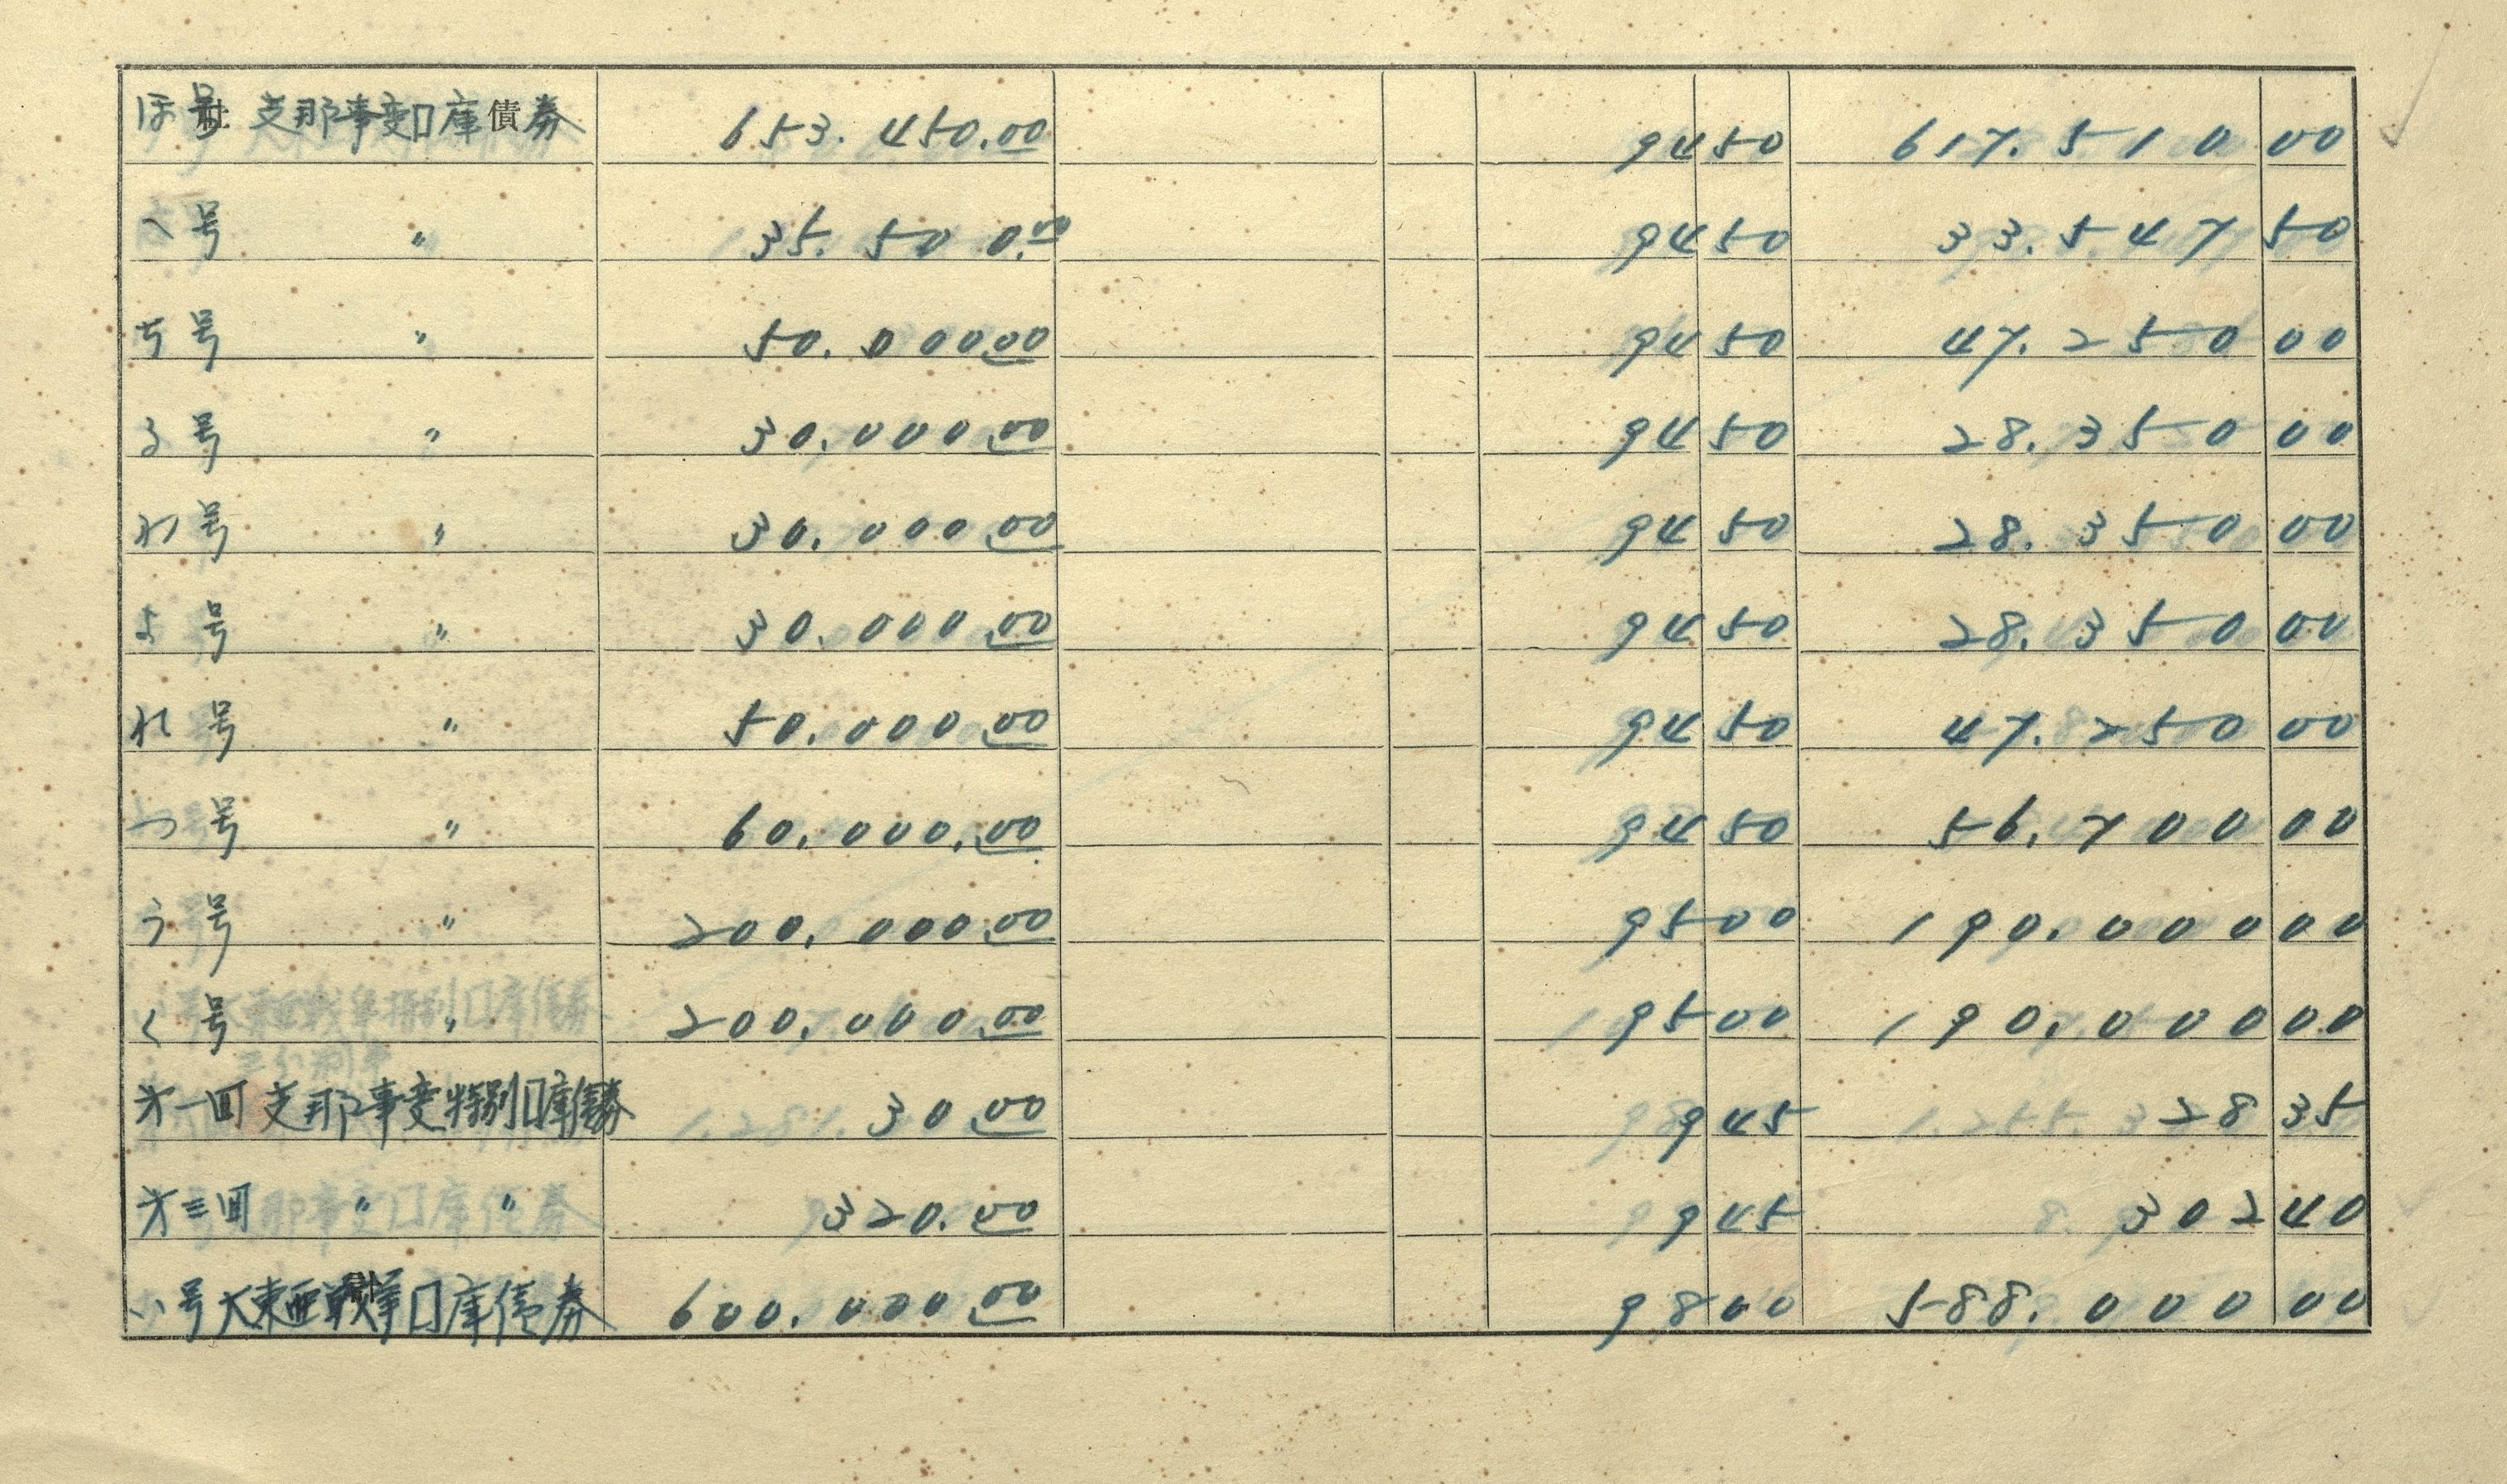 ほ号 支那事変囗庫債券 653.450.00 94 50 617.510 00
へ号 〃 35.500.00 94 50 33.547 50
ち号 〃 50.000 00 94 50 47.250 00
る号 〃 30.000 00 94 50 28.350 00
わ号 〃 30.000 00 94 50 28.350 00
よ号 〃 30.000 00 94 50 28.350 00
れ号 〃 50.000.00 94 50 47.250 00
つ号 〃 60.000.00 94 50 56.700 00
う号 〃 200.000 00 95 00 190.000 00
く号 〃 200.000 00 95 00 190.000 00
才一回 支那事変特別囗庫債券 30 00 9 45 28 35
才三回 〃 〃 320.00 9 45 302 40
い号 大東亜戦争囗庫債券 600.000 00 98 00 588.000 00